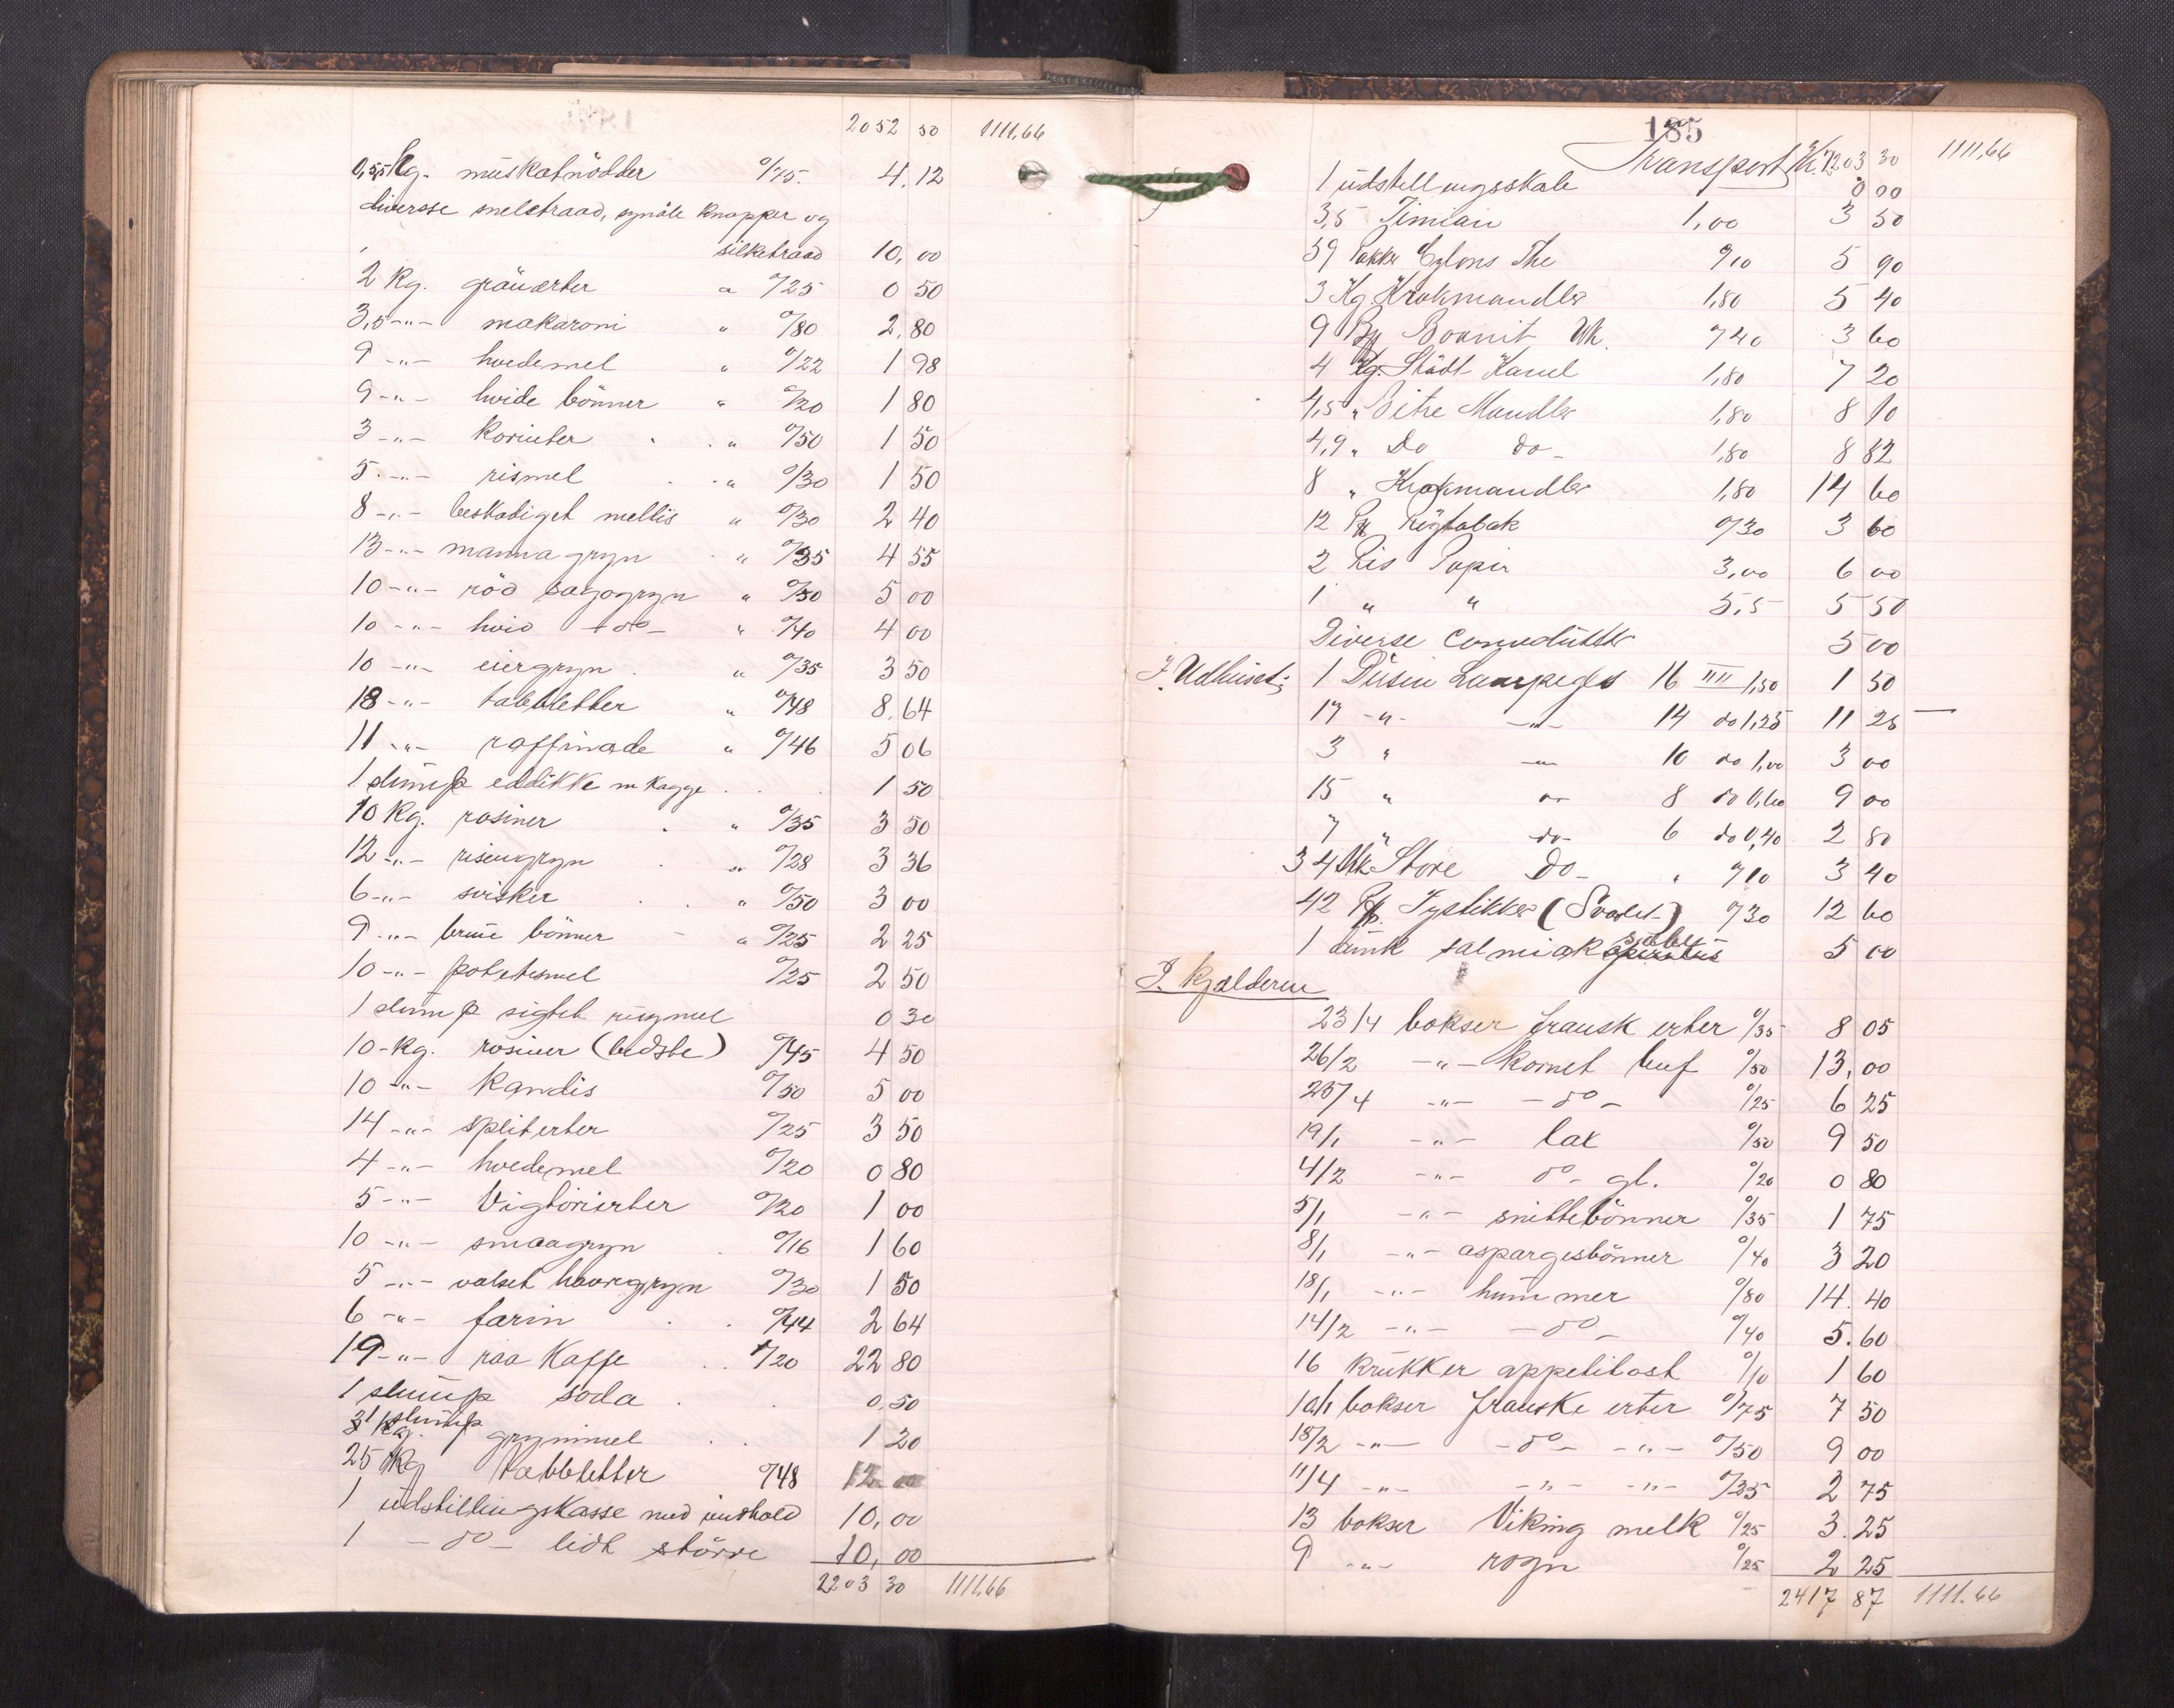 2052 50 1111,66
0,55 kg. muskatnödder 0/75. 4,12
diversse sneletraad, synåle knapper og
silketraad 10,00
2 kg. gråuerter a 0/25 0 50
3,5 -"- makaroni " 0/80 2,80
9 -"- hvedemel " 0/22 1 98
9 -"- hvide bönner " 0/20 1 80
3 -"- korinter " 0/50 1 50
5 -"- rismel " 0/30 1 50
8 -"- beskadiget mellis " 0/30 2 40
13 -"- manna gryn " 0/35 4 55
10 -"- röd sagogryn " 0/50 5 00
10 -"- hvid -do- " 0/40 4 00
10 -"- eiergryn " 0/35 3 50
18 -"- tabbletter " 0/48 8,64
11 -"- raffinade " 0/46 5 06
1 slump eddikke m kagge 1 50
10 Kg. rosiner " 0/35 3 50
12 -"- risengryn " 0/28 3 36
6 -"- svisker " 0/50 3 00
9 -"- brune bönner " 0/25 2 25
10 -"- potetesmel 0/25 2 50
1 slump sigtet rugmel 0 30
10 - kg. rosiner (bedste) 0/45 4 50
10 -"- Kandis 0/50 5 00
14 -"- spliterter 0/25 3 50
4 -"- hvedemel 0/20 0 80
5 -"- Vigtorierter 0/20 1 00
10 -"- smaagryn 0/16 1 60
5 -"- valset havregryn 0/30 1 50
6 -"- farin 0/44 2 64
19 -"- raa Kaffe 1/20 22 80
1 slump soda 0,50
1 slump grynmel 1 20
25 Kg tabbletter 0/48 12 00
1 udstillingskasse med indhold 10,00
1 -do- lidt större 10,00
2203 30 1111,66
185
Transport Kr. 2203 30 1111,66
1 udstellingsskale 0 90
3,5 Timian 1,00 3 50
59 Pakker Cylons The 0/10 5 90
3 Kg Krakmandler 1,80 5 40
9 0/40 3 60
4 Kg. Stödt Kanel 1,80 7 20
4,5 " Bitre Mandler 1,80 8 10
4,9 " Do do- 1,80 8 82
8 " Krakmandler 1,80 14 60
12 Pk Rögtobak 0/30 3 60
2 Ris Papir 3,00 6 00
1 " " 5,5 5 50
Diverse Convolutter 5 00
I Udhuset; 1 Dusin Lampeglas 16 III 1,50 1 50
17 -"- -"- 14 do 1,25 11 25
3 " -"- 10 do 1,00 3 00
15 " -"- 8 do 0,60 9 00
7 " -do- 6 do 0,40 2 80
34 Stk Store Do- " 0/10 3 40
42 Pk. Fystikker (Svovel-) 0/30 12 60
1 dunk salmiak spiritus 5 00
I kjælderen
23/4 bokser fransk erter 0/35 8 05
26/2 -"- kornet beuf 0/50 13,00
25/4 -"- -do- 0/25 6 25
19/1 -"- lax 0/50 9 50
4/2 -"- do- gl. 0/20 0 80
5/1 -"- snittebönner 0/35 1 75
8/1 -"- aspargesbönner 0/40 3 20
18/1 -"- hummer 0/80 14.40
14/2 -"- -do- 0/40 5.60
16 krukker appetitost 0/10 1 60
10/1 bokser franske erter 0/75 7 50
18/2 -"- -do- -"- 0/50 9 00
11/4 -"- -"- -"- 0/25 2 75
13 bokser Viking melk 0/25 3.25
9 -"- rogn 0/25 2 25
2417 87 1111.66